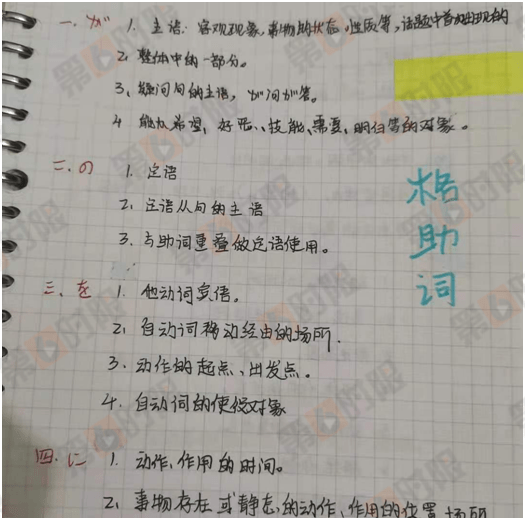 一、“が” 1. 主语:客观现象,事物的状态,性质等,话题中首次出现的
2. 整体中的一部分。
3. 疑问句的主语,“が”问“が”答。
4 能力希望,好恶、技能、需要、明白等的对象。
二、の 1. 定语
2. 定语从句的主语
3. 与助词重叠做定语使用。
三、を 1. 他动词宾语。
2. 自动词移动经由的场所.
3. 动作的起点、出发点。
4. 自动词的使役对象
四、に 1. 动作,作用的时间。
2. 事物存在或静态的动作、作用的位置场所
格助词